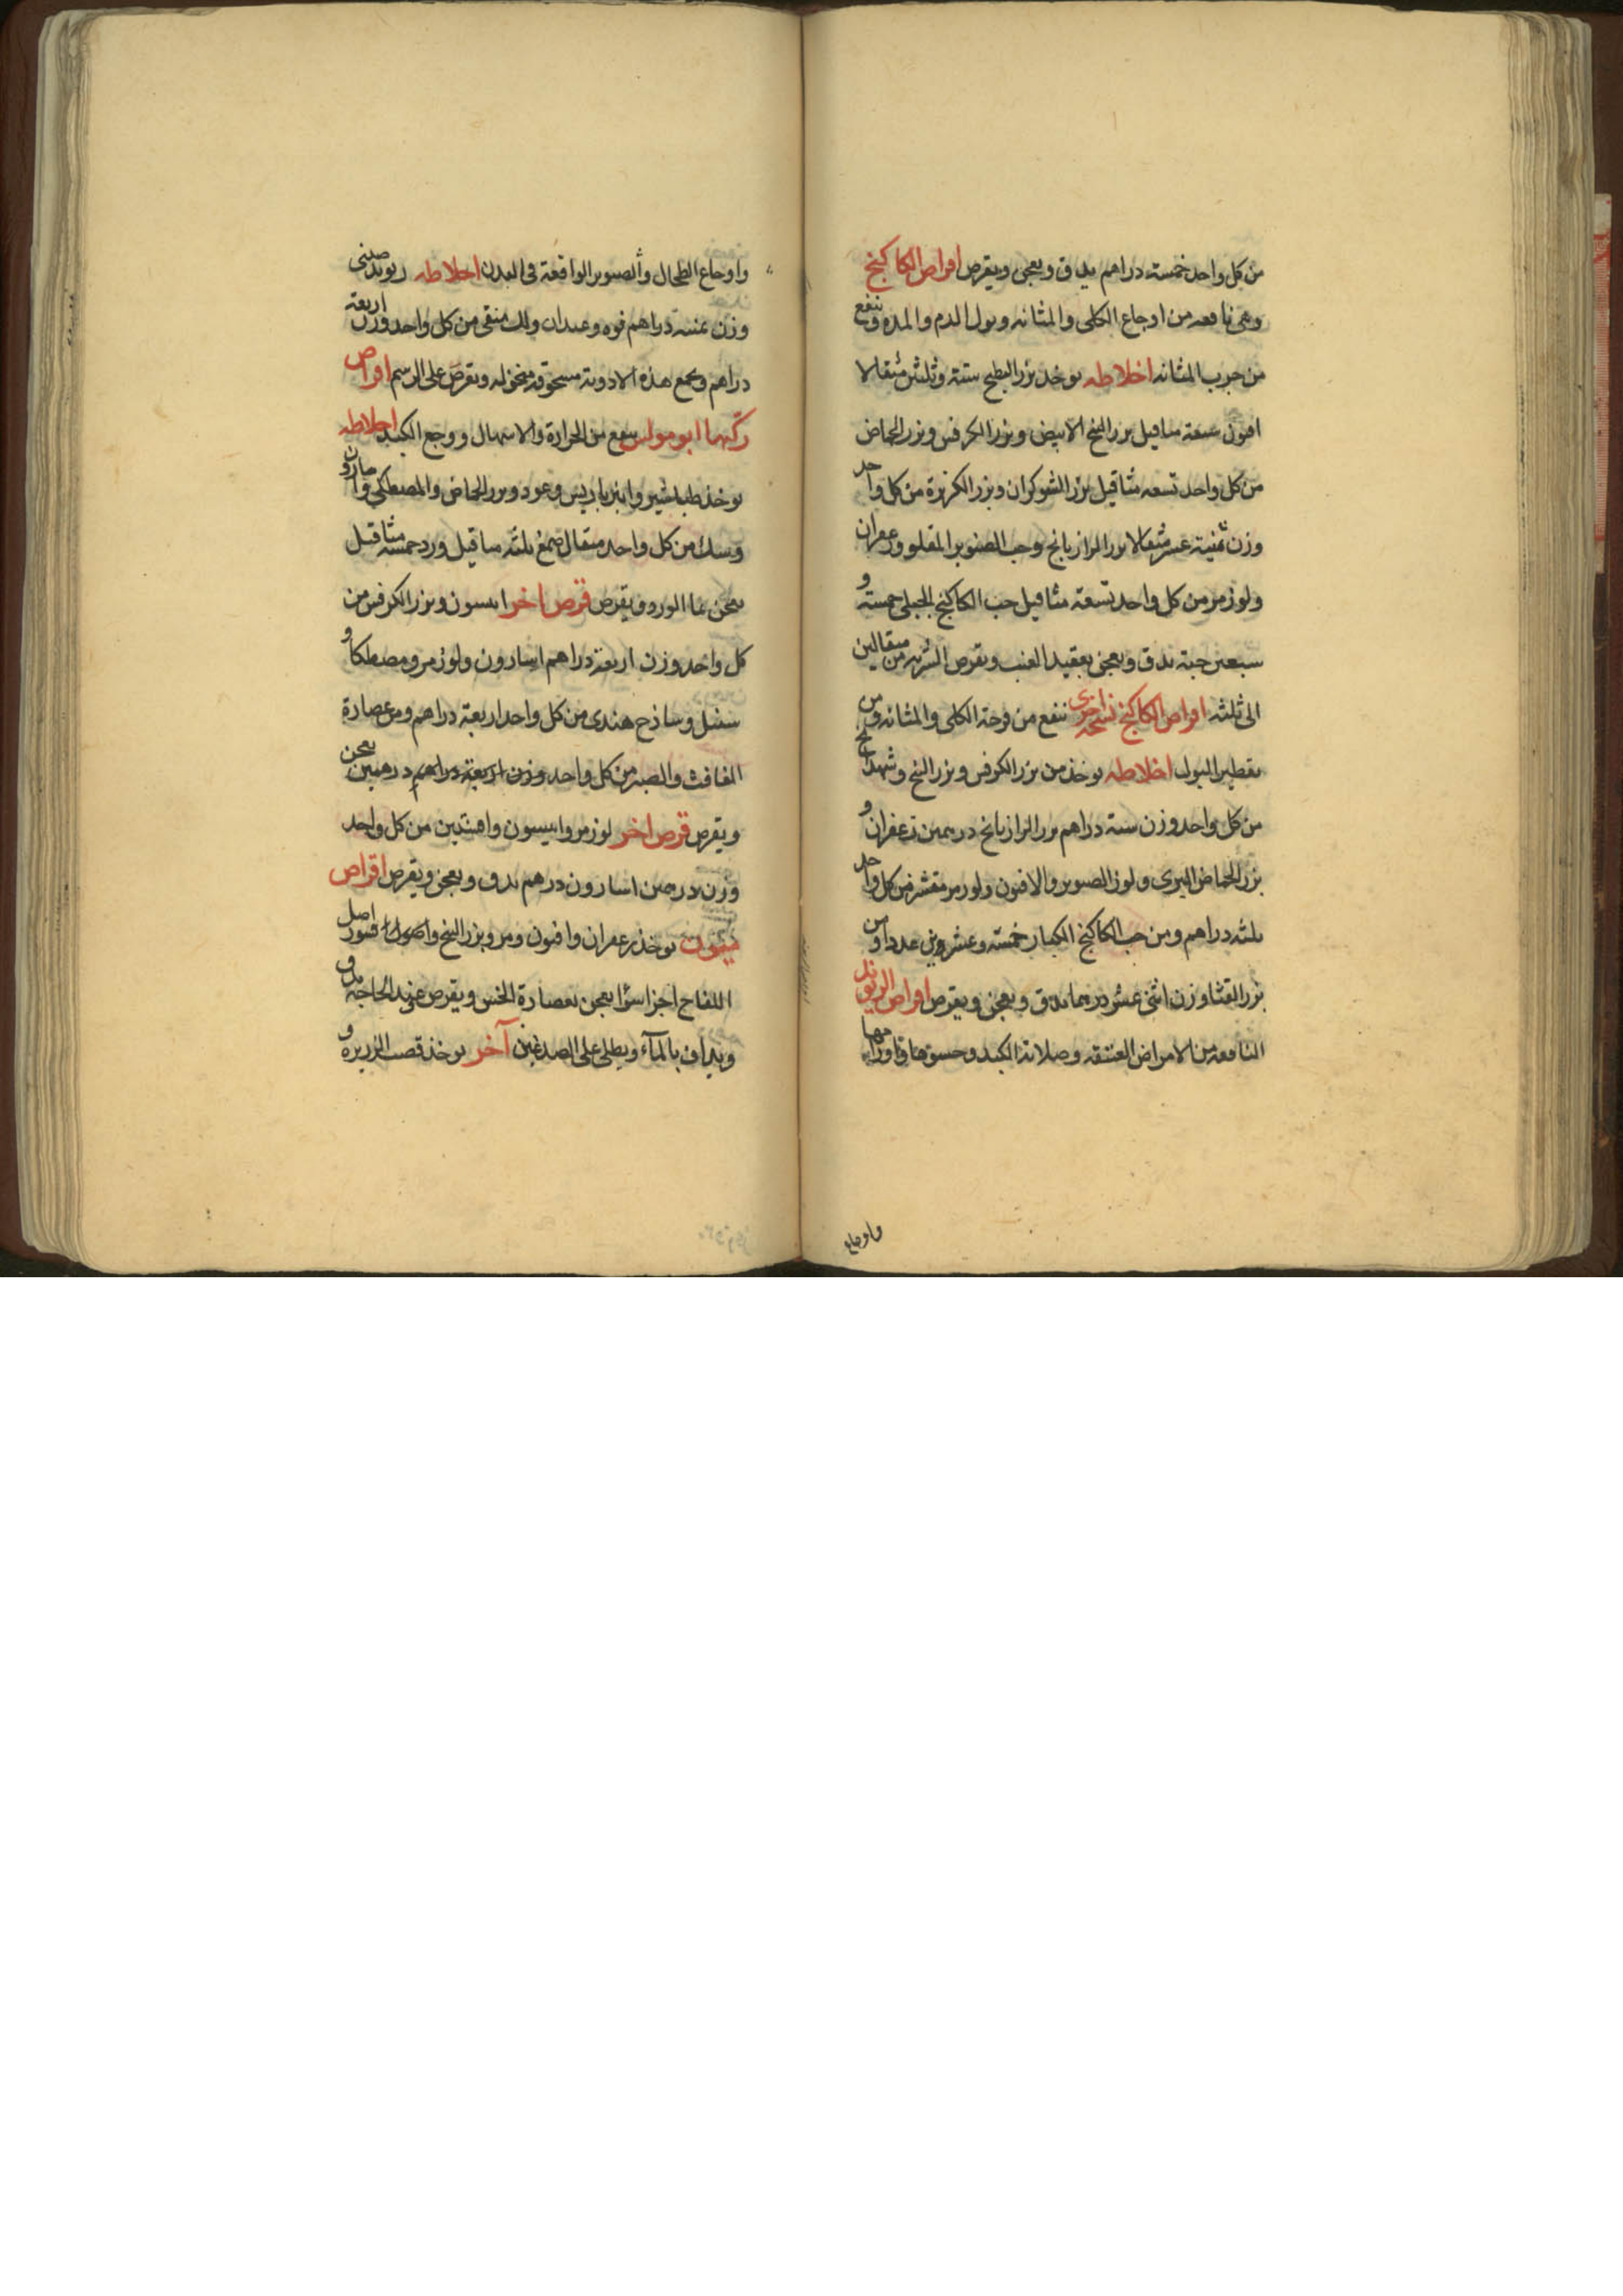 من كل واحد خمسته دراهم يدق ويعجن ويقرص اقراص الكاكنج
وهى نافعه من اوجاع الكلى والمثانه وبول الدم والمده وينفع
من جرب المثانه اخلاطه يوخذ بزر البطيخ ستة وثلثين مثقالا
افيون تسعة مثاقيل بزر البنج الابيض وبزر الكرفس وبزر الحماض
من كل واحد تسعه مثاقيل بزر الشوكران وبزر الكزبرة من كل واحد
وزن ثمنية عشر مثقالا بزر الرازيانج وحب الصنوبر المقلو وزعفران
ولوز مر من كل واحد تسعة مثاقيل حب الكاكنج الجبلى خمسته و
سبعين حبة يدق ويعجن بعقيد العنب ويقرص الشربه من مثقالين
الى ثلثه اقراص الكاكنج نسخه اخرى تنفع من قرحة الكلى والمثانه ومن
تقطير البول اخلاطه يوخذ من بزر الكرفس وبزر البنج وشهدانج
من كل واحد وزن ستة دراهم بزر الرازيانج درهمين زعفران و
بزر الحماض البرى ولوز الصنوبر والافيون ولوز مر مقشر من كل واحد
ثلثه دراهم ومن حب الكاكنج الكبار خمسته وعشرين عددا ومن
بزر القثا وزن اثنى عشر درهما يدق ويعجن ويقرص اقراص الريوند
النافعه من الامراض العتيقه وصلابة الكبد وجسوها واورامها
واوجاع
واوجاع الطحال والصور الواقعة فى البدن اخلاطه ريوند صينى
وزن ثمنية دراهم فوه وعيدان ولك منقى من كل واحد وزن اربعة
دراهم ويجمع هذه الادوية مسحوقه منخوله ويقرص على الرسم اقراص
ركبها ابو مواس ينفع من الحرارة والاسهال ووجع الكبد اخلاطه
يوخذ طباشير وانبرباريس وعود وبزر الحماض والمصطكى واسارون
وسك من كل واحد مثقال صمغ ثلثه مثاقيل ورد خمسة مثاقيل
يعجن بما الورد ويقرص قرص اخر انيسون وبزر الكرفس من
كل واحد وزن اربعة دراهم اسارون ولوز مر ومصطكا و
سنبل وساذج هندى من كل واحد اربعة دراهم ومن عصارة
الغافث والصبر من كل واحد وزن اربعة دراهم درهمين يعجن
ويقرص قرص اخر لوز مر وانيسون وافسنتين من كل واحد
وزن درهمين اسارون درهم يدق ويعجن ويقرص اقراص
يوخذ زعفران وافيون ومر وبزر البنج واصول قشور اصل
اللفاح اجزا سوا يعجن بعصارة الخس ويقرص عند الحاجة يدق
ويداف بالمآء ويطلى على الصدغين آخر يوخذ قصب الذريرة و